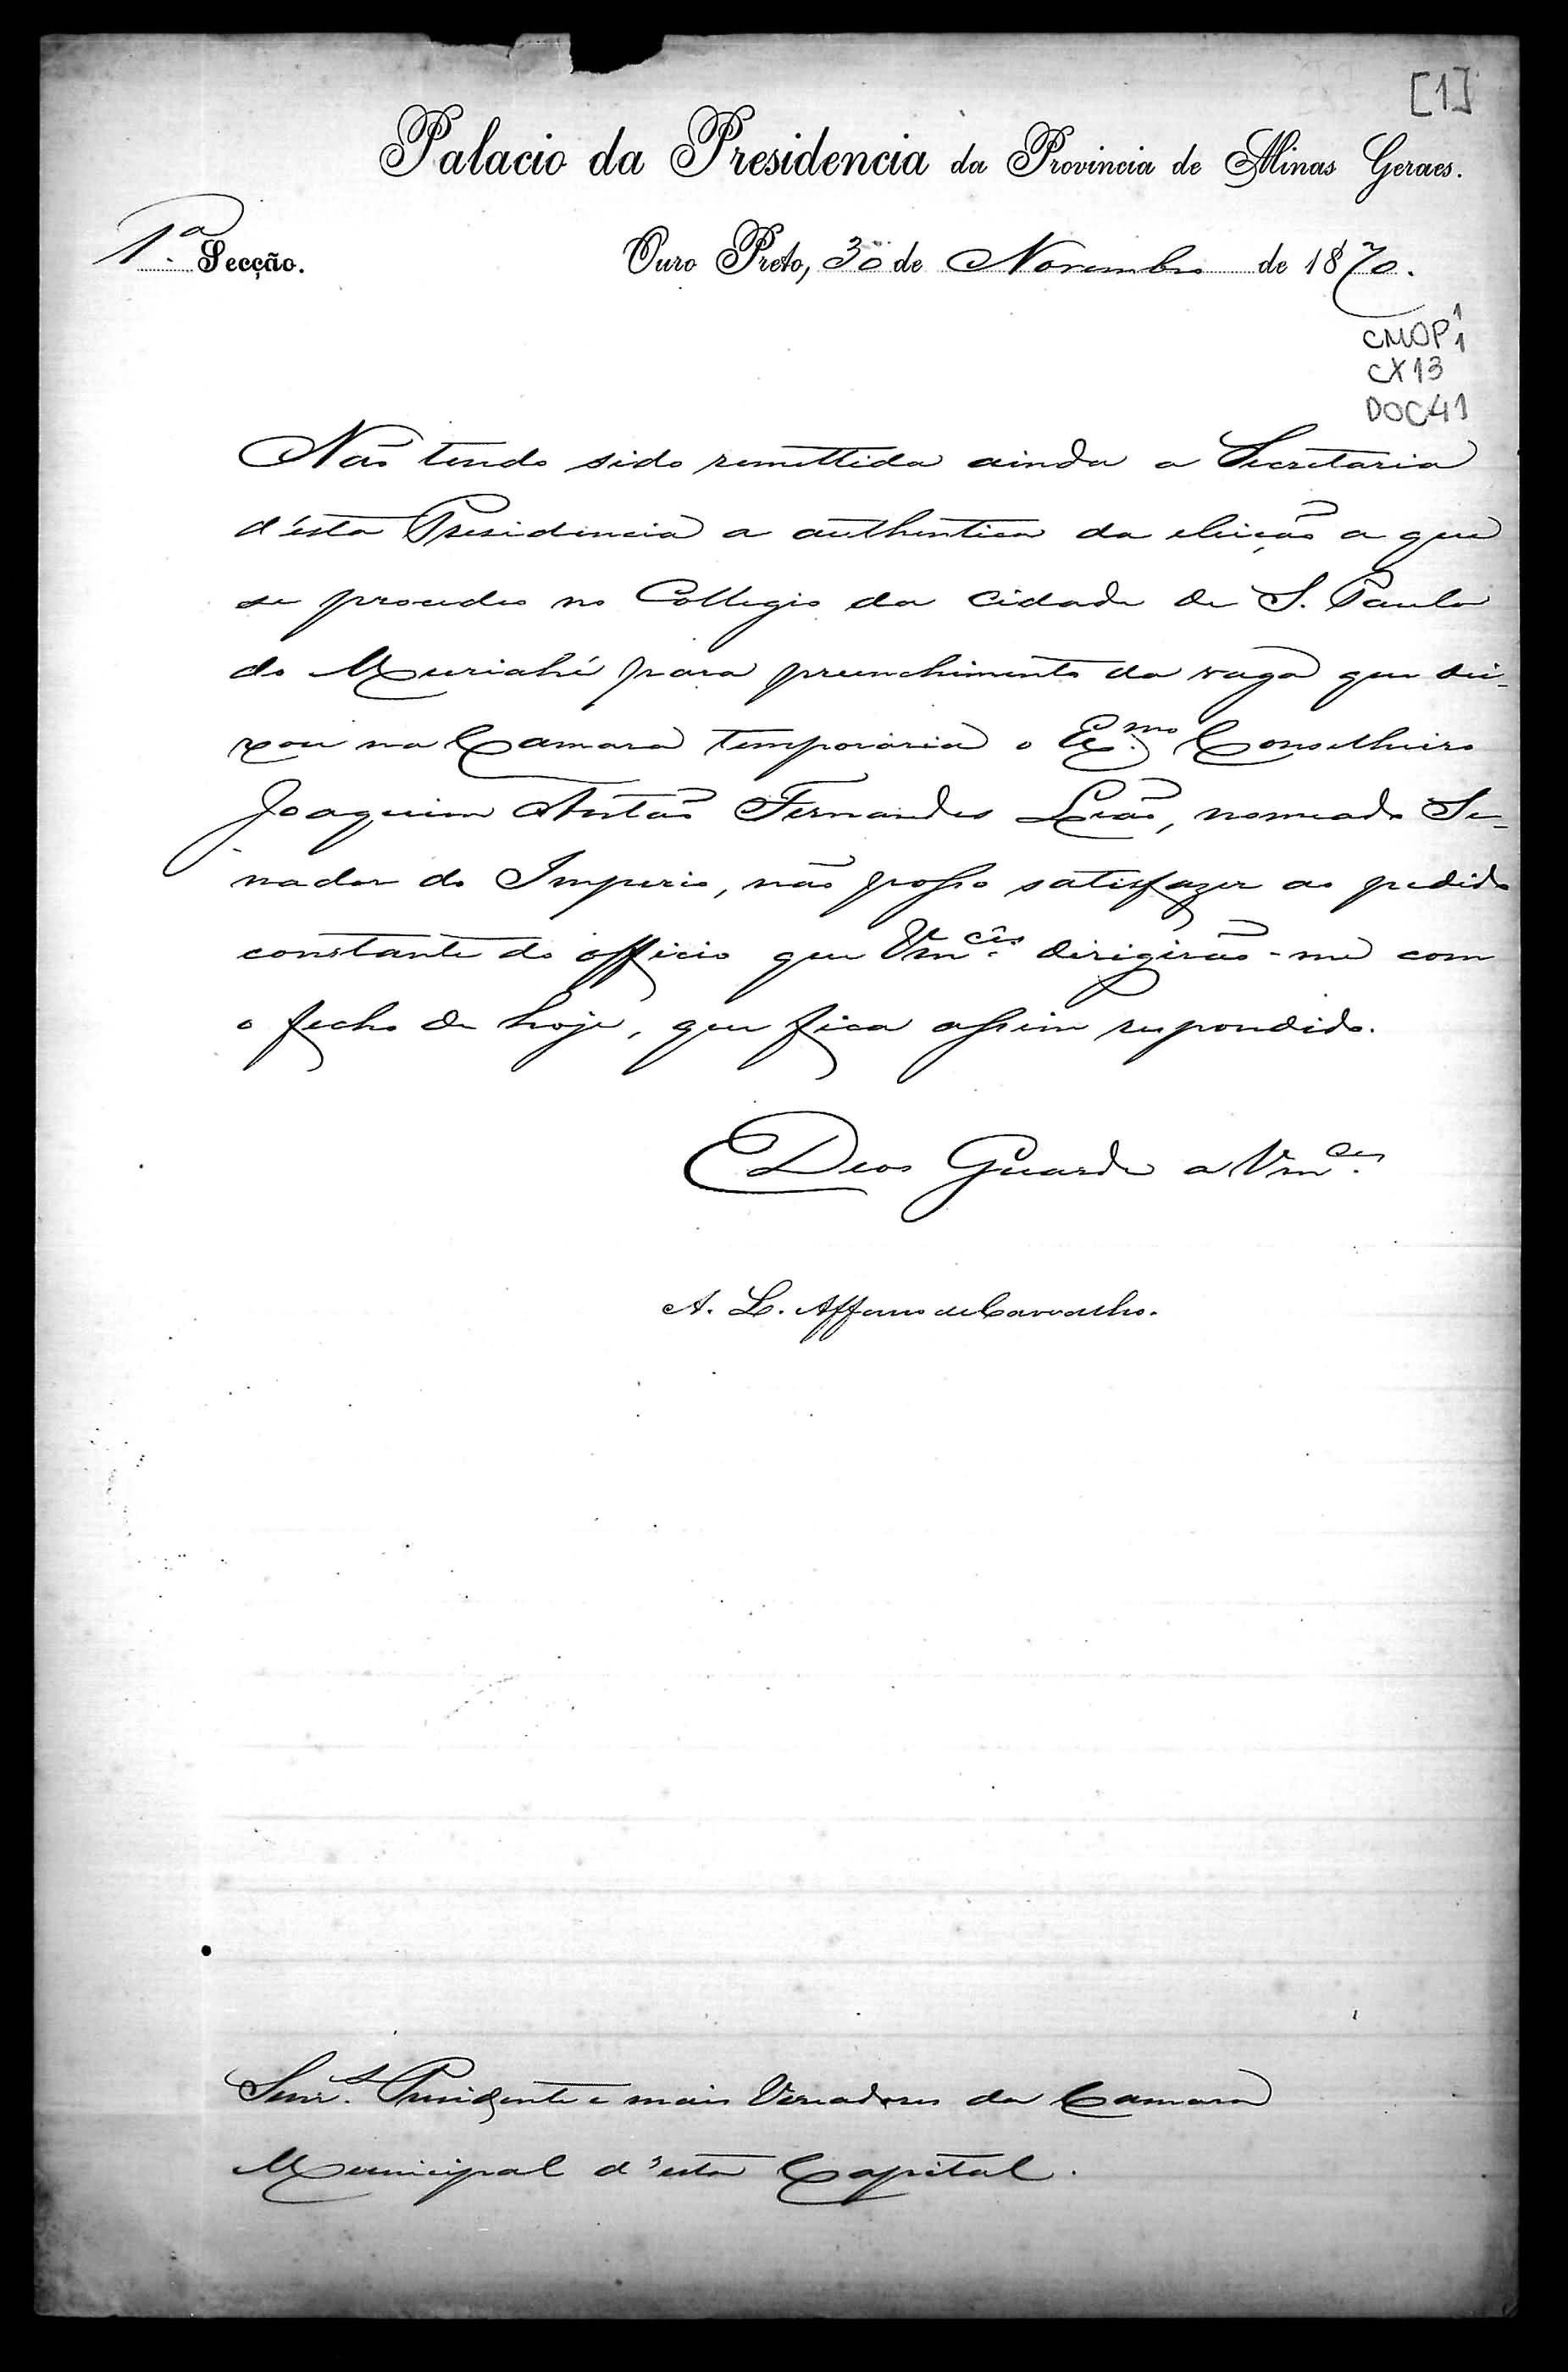 [1]
Palacio da Presidencia da Provincia de Minas Geraes.
1ª Secção.
Ouro Preto, 30 de Novembro de 1870.
CMOP 1
1
CX 13
DOC 41
Não tendo sido remettida ainda a Secretaria
d'esta Presidencia a authentica da eleição a que
se procedeo no Collegio da Cidade de S. Paulo
do Muriahé para preenchimento da vaga que dei-
xou na Camara temporaria o Exmo. Conselheiro
Joaquim Antão Fernandes Leão, nomeado Se-
nador do Imperio, não posso satisfazer ao pedido
constante do officio que Vmcês. dirigirão-me com
o fecho de hoje, que fica assim respondido.
Deos Guarde a Vmces.
A. L. Affonso de Carvalho.
Senrs. Presidente e mais Vereadores da Camara
Municipal d'esta Capital.